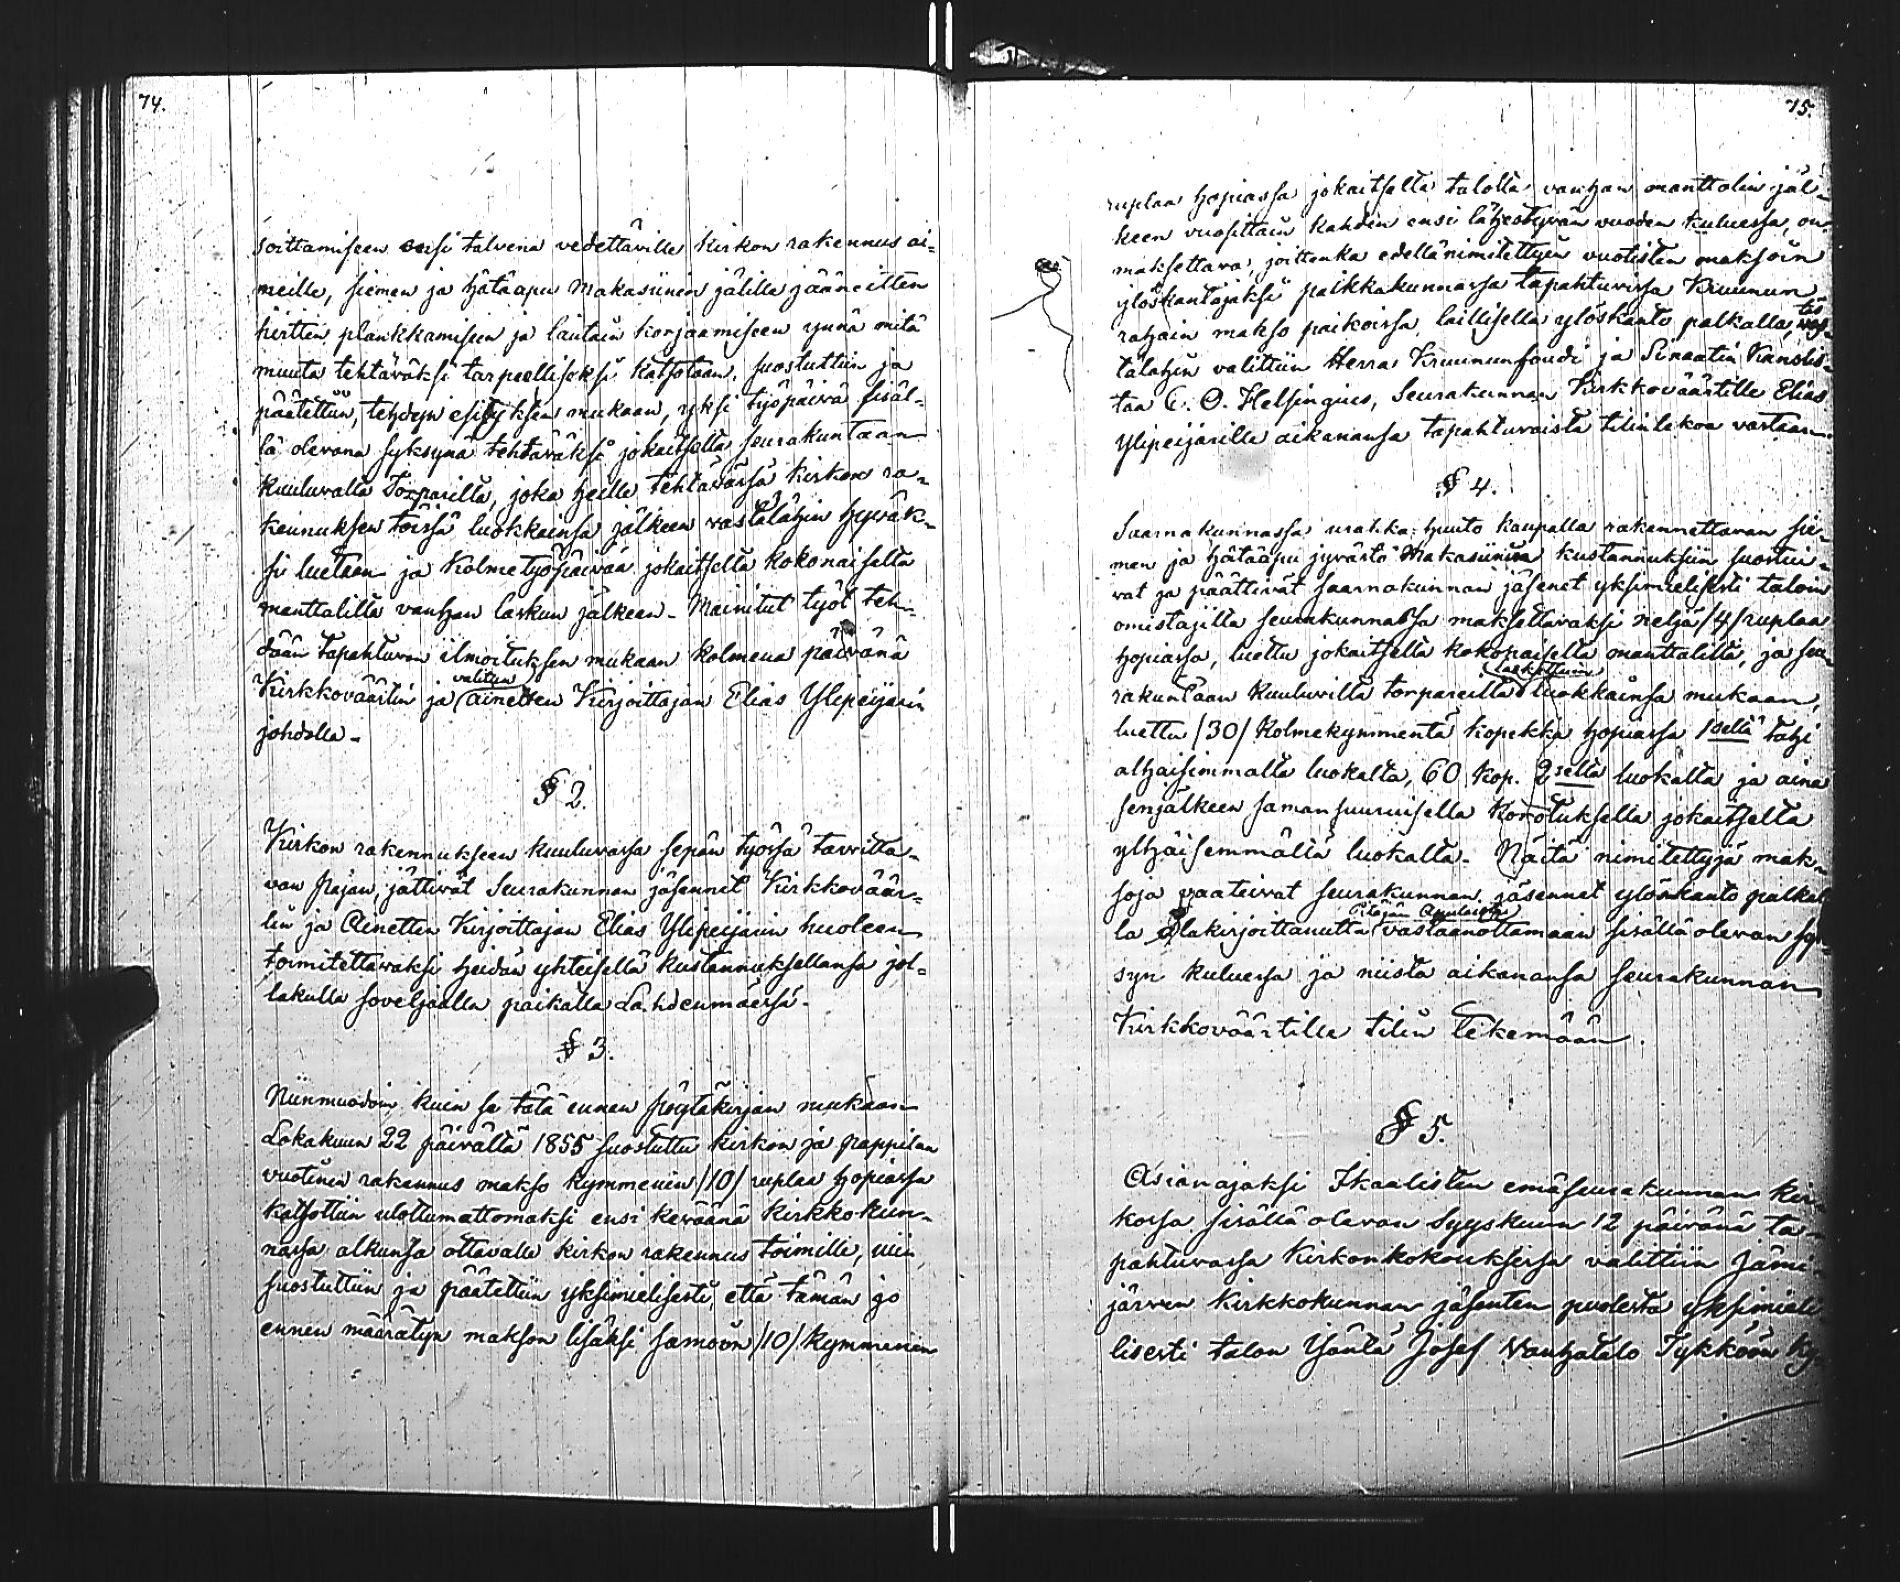 74.
soittamiseen ensi talvena vedettäville Kirkon rakennus ai=
neille, siemen ja hätäapu Makasiinin jälille jääneitten
hirtten plankkamiseen ja lautain korjaamiseen ynnä mitä
muuta tehtäväksi tarpeelliseksi katsotaan, suostuttiin ja
päätettiin, tehdyn esityksen mukaan, yksi työpäivä sisäl=
lä olevana syksynä tehtäväksi jokaitselta seurakuntaan
kuuluvalta Torparilta, joka heille tehtävässä Kirkon ra=
kennuksen töissä luokkainsa jälkeen vastalähin hyväk=
si luetaan ja Kolme työpäivää jokaitselta kokonaiselta
manttalilta vanhan laskun jälkeen. Mainitut työt teh=
dään tapahtuvan ilmoituksen mukaan kolmena päivänä
valitun
Kirkkoväärtin ja ainetten Kirjoittajan Elias Ylipeijarin
johdolla.
§ 2.
Kirkon rakennukseen kuuluvassa sepän työssä tarvitta=
van pajan, jättivät Seurakunnan jäsennet Kirkkoväär=
tin ja Ainetten Kirjoittajan Elias Ylipeijarin huoleen
toimitettavaksi heidän yhteisellä kustannuksellansa jol=
lakulla soveljaalla paikalla Lahdenmäessä.
§ 3.
Niinmuodoin kuin se tätä ennen pöytäkirjan mukaan
Lokakuun 22 päivältä 1855 suostuttu kirkon ja pappilan
vuotinen rakennus makso kymmenin /10/ ruplaa hopiassa
katsottiin ulottumattomaksi ensi keväänä Kirkkokun=
nassa alkunsa ottavalle kirkon rakennus toimille, niin
suostuttiin ja päätettiin yksimielisesti, että tämän jo
ennen määrätyn makson lisäksi samoin /10/ Kymmenin
75.
ruplaa hopiassa jokaitselta talolta vanhan manttolin jäl=
keen vuosittain kahden ensi lähestyvän vuoden kuluessa, on
maksettava, joittenka edellänimitettyin vuotisten maksoin
ylöskantajaksi paikkakunnassa tapahtuvissa Kruunun
rahain makso paikoissa, laillisella ylöskanto palkalla,
tälahin valittiin Herra Kruununfoudi ja Sinaatin Kanslis=
taa C. O. Helsingius, Seurakunnan Kirkkoväärtille Elias
Ylipeijarille aikanansa tapahtuvaista tilintekoa vastaan.
§ 4.
Saarnakunnassa urakka: huuto kaupalla rakennettavan sie=
men ja hätäapu jyvästö Makasiinin kustannuksiin suostui=
vat ja päättivät saarnakunnan jäsenet yksimielisesti taloin
omistajilta seurakunnassa maksettavaksi neljä /4/ ruplaa
hopiassa, luettu jokaitselta kokonaiselta manttalilta, ja seu=
laskettuin
rakuntaan kuuluvilta torpareilta luokkainsa mukaan,
luettu /30/ Kolmekymmentä kopekkia hopiassa 1seltä tahi
alhaisimmalta luokalta, 60 Kop. 2selta luokalta ja aina
senjälkeen saman suuruisella Korotuksella jokaitselta
ylhäisemmältä luokalta. Näitä nimitettyjä mak=
soja vaateivat seurakunnan jäsennet ylöskanto palkal
Pitäjän Apulaista
la Allakirjoittanutta vastaanottamaan sisällä olevan sy=
syn kuluessa ja niistä aikanansa seurakunnan
Kirkkoväärtille tilin tekemään.
§ 5.
Asianajaksi Ikaalisten emäseurakunnan kir=
kossa sisällä olevan Syyskuun 12 päivänä ta=
pahtuvassa Kirkonkokouksessa valittiin Jämi=
järven Kirkkokunnan jäsenten puolesta yksimieli
lisesti talon Isäntä Josef Vanhatalo Tykköön ky